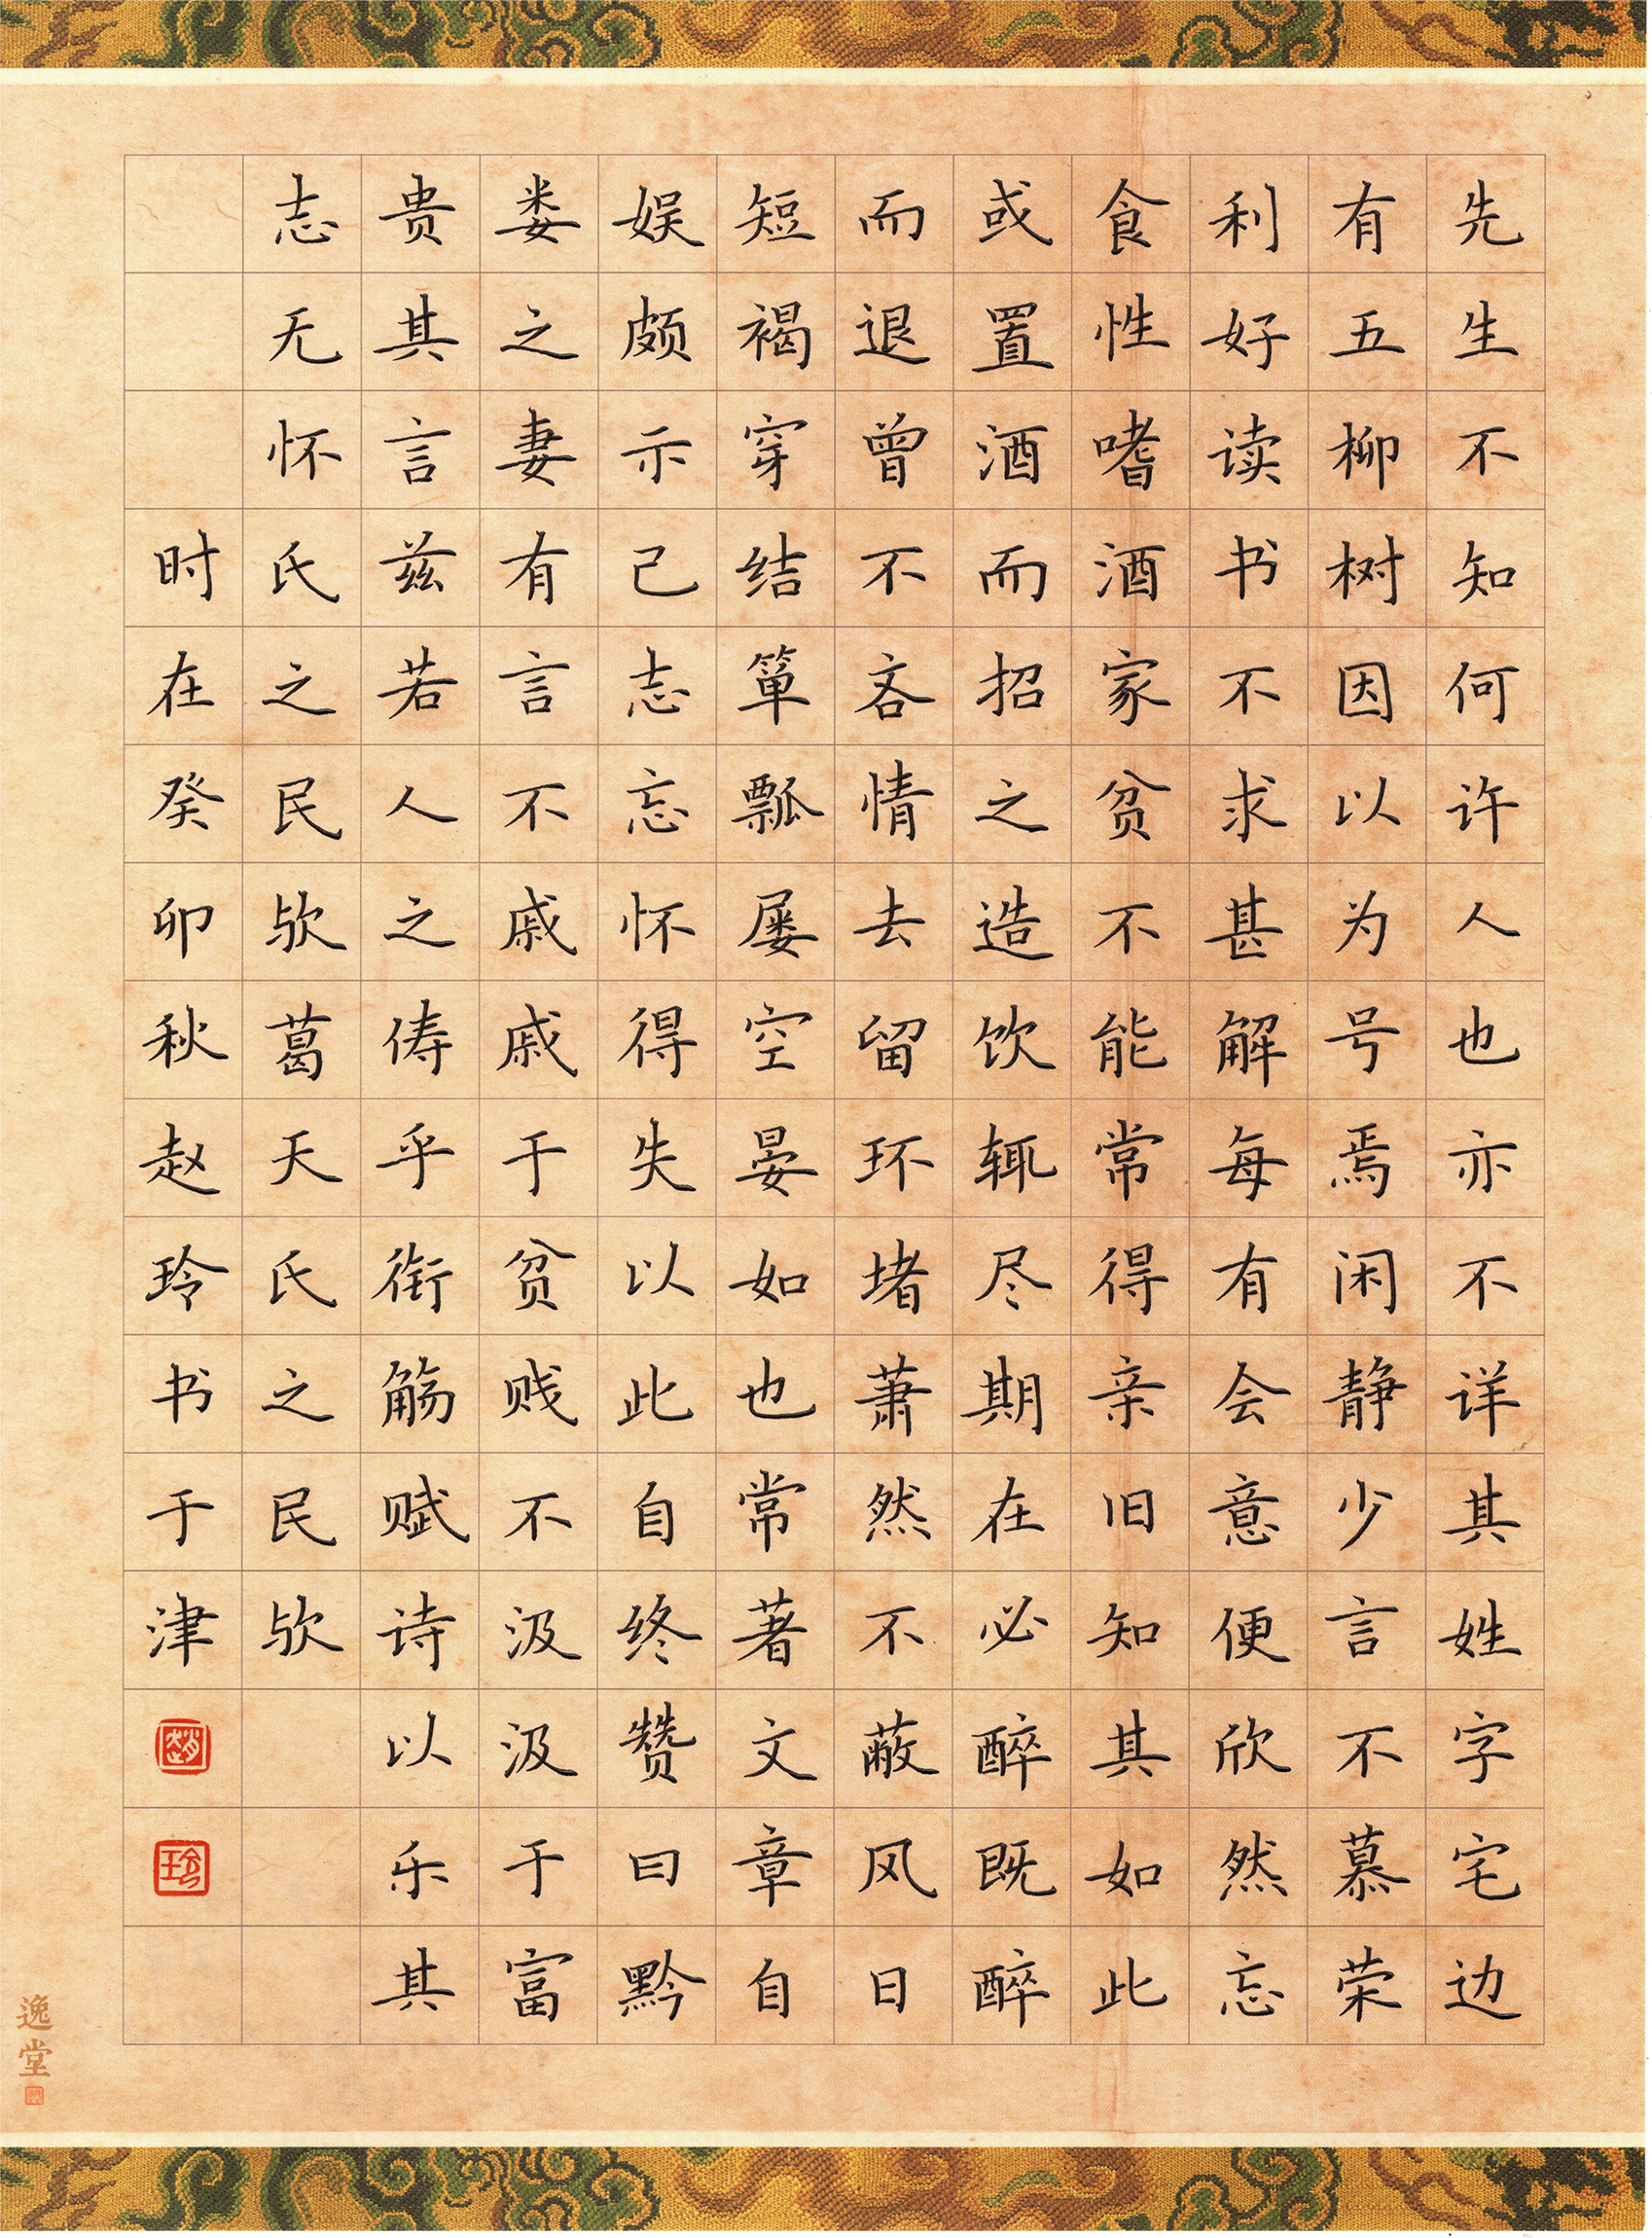 先生不知何许人也亦不详其姓字宅边
有五柳树因以为号焉闲静少言不慕荣
利好读书不求甚解每有会意便欣然忘
食性嗜酒家贫不能常得亲旧知其如此
或置酒而招之造饮辄尽期在必醉既醉
而退曾不吝情去留环堵萧然不蔽风日
短褐穿结箪瓢屡空晏如也常著文章自
娱颇示己志忘怀得失以此自终赞曰黔
娄之妻有言不戚戚于贫贱不汲汲于富
贵其言兹若人之俦乎衔觞赋诗以乐其
志无怀氏之民欤葛天氏之民欤
时在癸卯秋赵玲书于津
趙
玲
逸堂